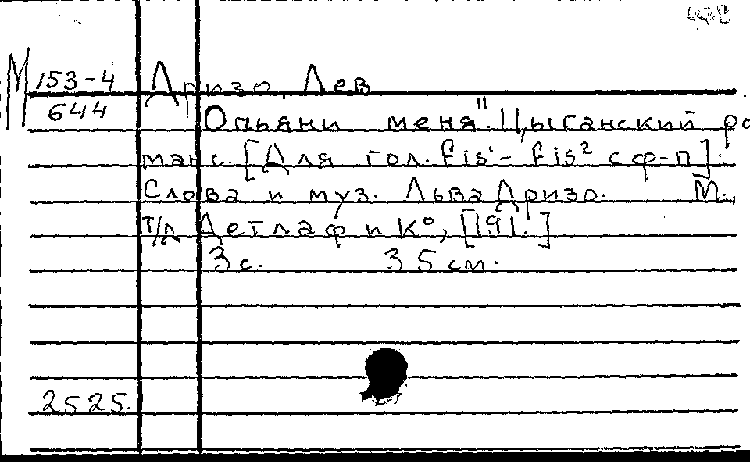 М 153-4 Дризо, Лев
644 "Опьяни меня". Цыганский ро
манс. [Для гол. fis¹- fis² с ф-п].
Слова и муз. Льва Дризо. М.,
т/д Детлаф и Кº, [191.]
3 с. 35 см.
2525.